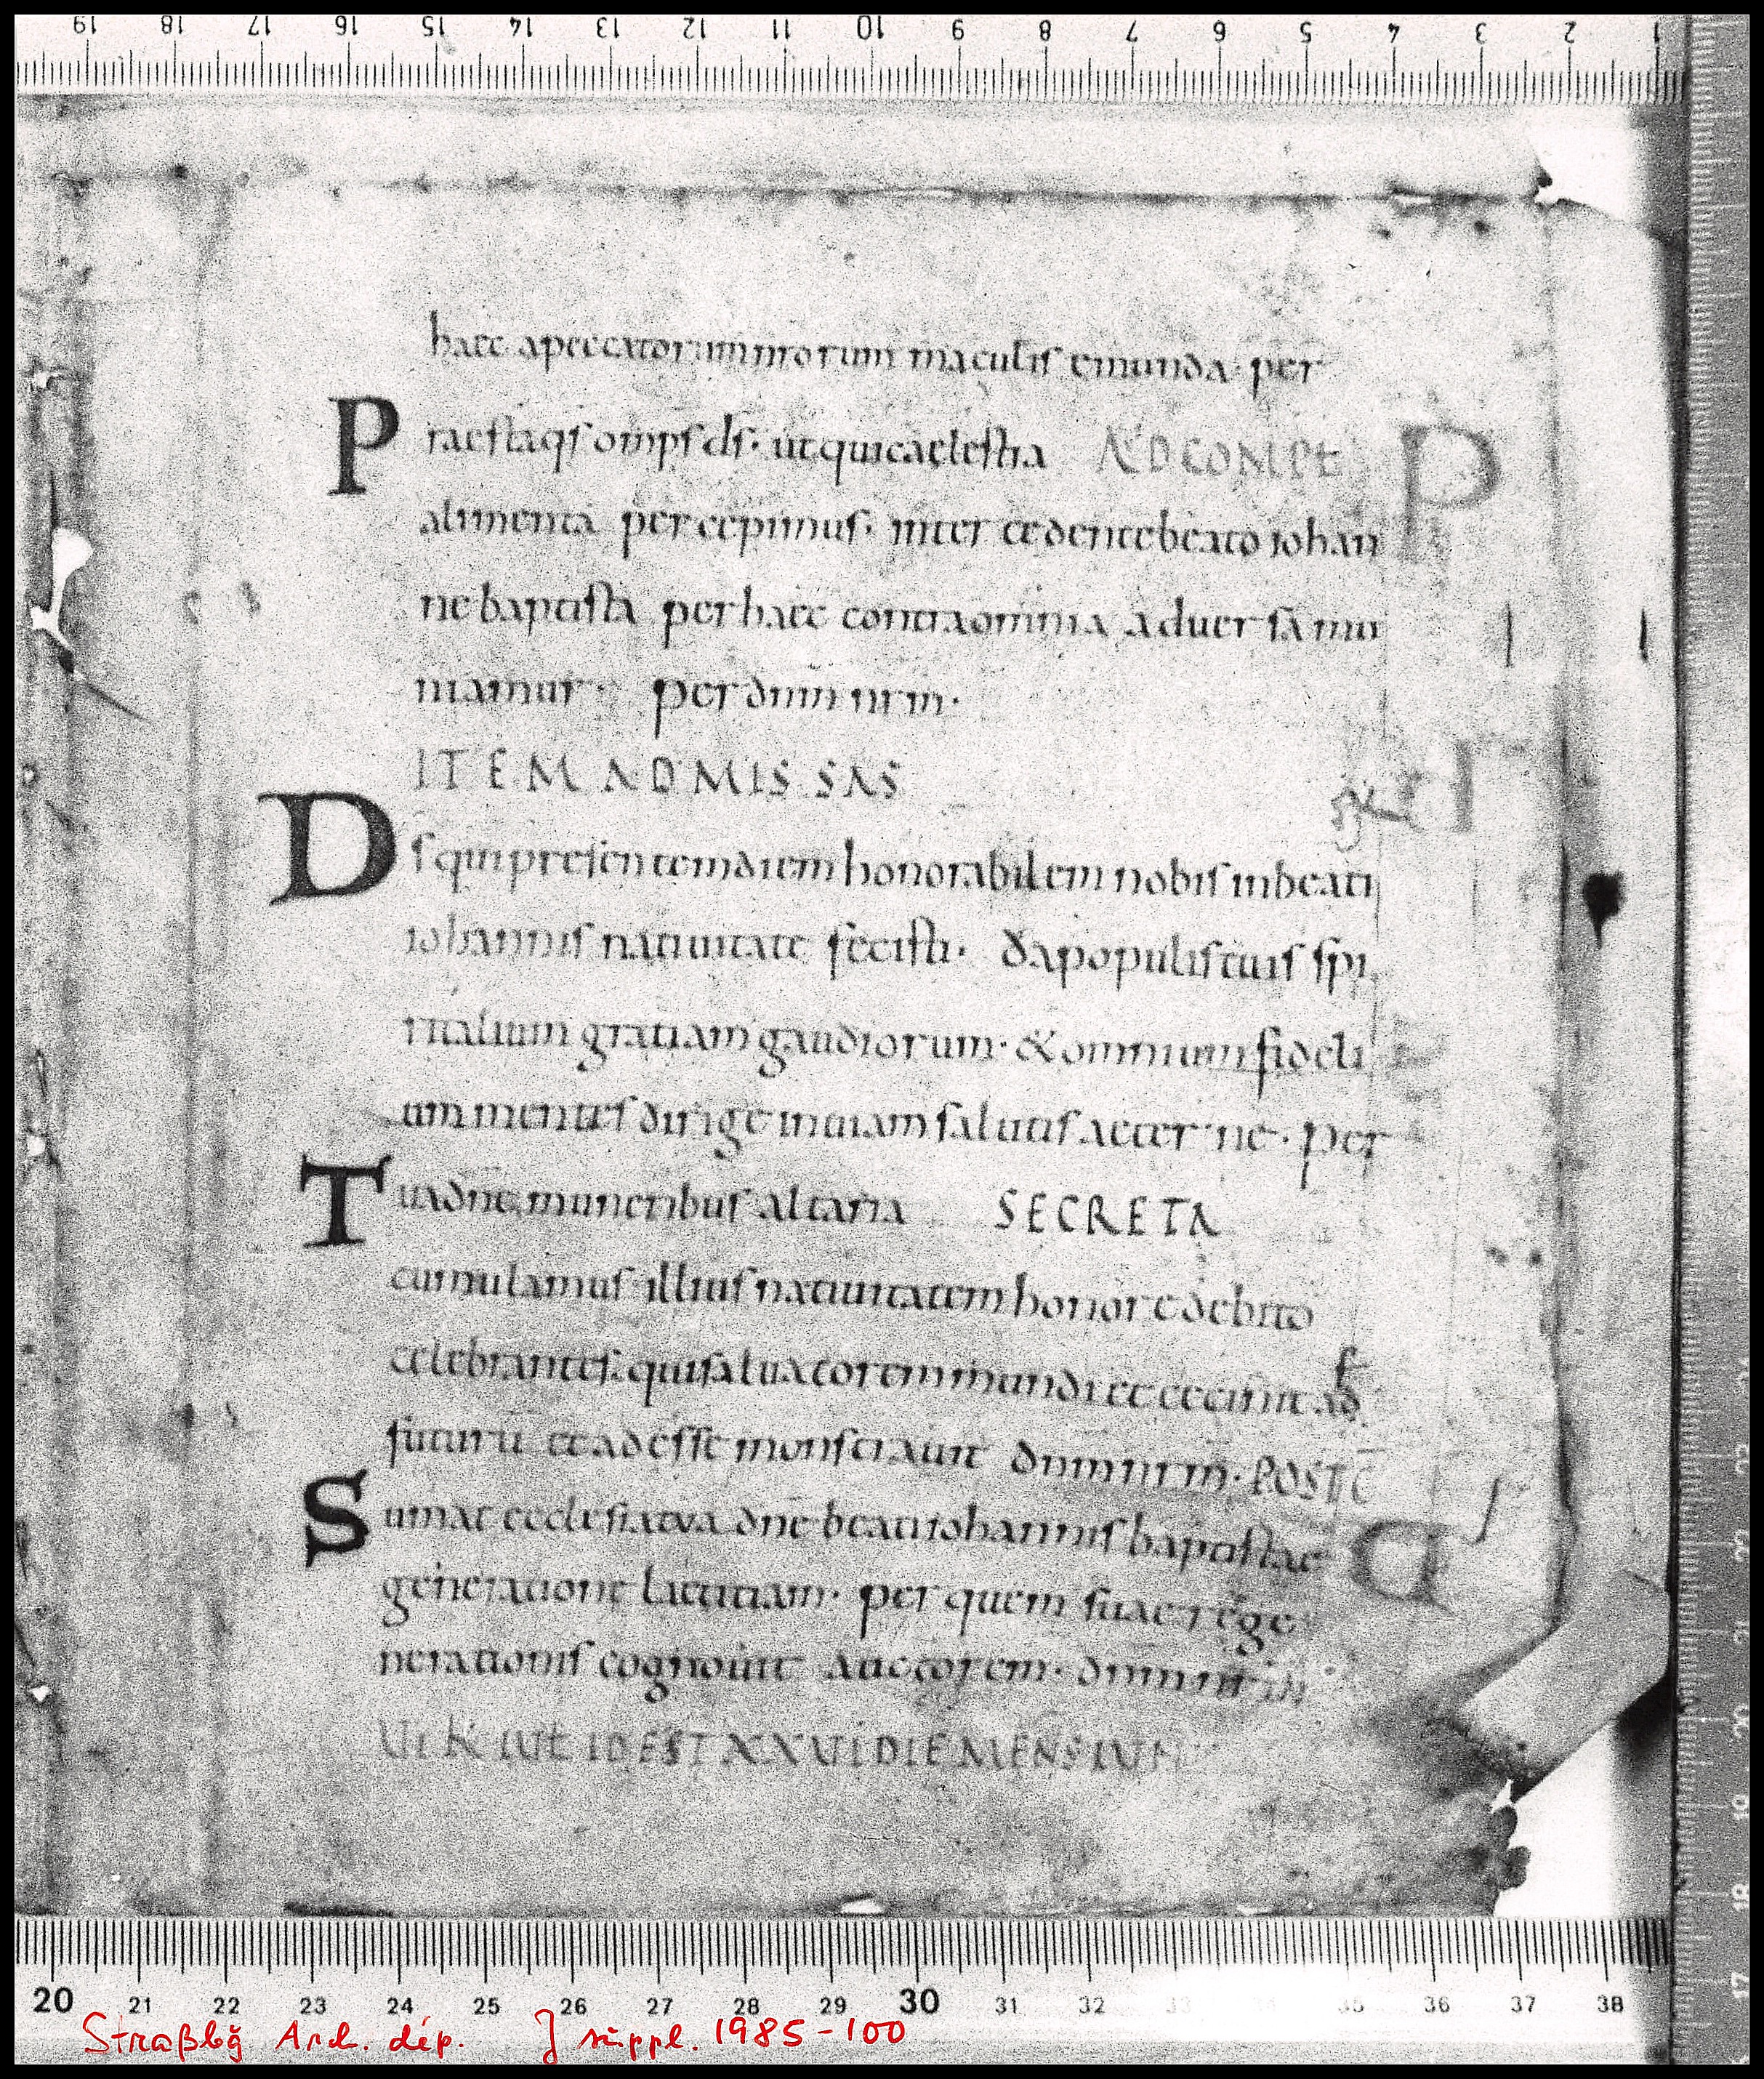 haec a peccatorum nrorum maculis emunda· per
Praesta qs omps ds· ut qui caelestia AD COMPL
alimenta percepimus· intercedente beato iohan
ne baptista per haec contra omnia aduersa mu
niamur· per dnm nrm·
ITEM AD MISSAS
Ds qui presentem diem honorabilem nobis in beati
iohannis natiuitate fecisti· da populis tuis spi
ritalium gratiam gaudiorum· & omnium fideli
um mentes dirige in uiam salutis aeterne· per
Tua dne muneribus altaria SECRETA
cumulamus illius natiuitatem honore debito
celebrantes· qui saluatorem mundi et cecinit ad
futurū et adesse monstrauit dnm nrm· POST C̄
Sumat ecclesia tua dne beati iohannis baptistae
generatione laetitiam· per quem suae rege
nerationis cognouit auctorem· dnm nrm
VI K IVL ID EST XXVI DIE MENSIS IVN
19 18 17 16 15 14 13 12 11 10 9 8 7 6 5 4 3 2 1
20 21 22 23 24 25 26 27 28 29 30 31 32 33 35 36 37 38
Straßbg Arch. dép. J suppl. 1985-100